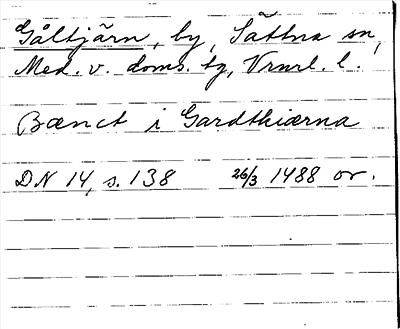 Gåltjärn, by, Sättna sn,
Med. v. doms. tg, Vrnrl. l.
Bænct i Gardtkiærna
DN 14, s. 138 26/3 1488 or.